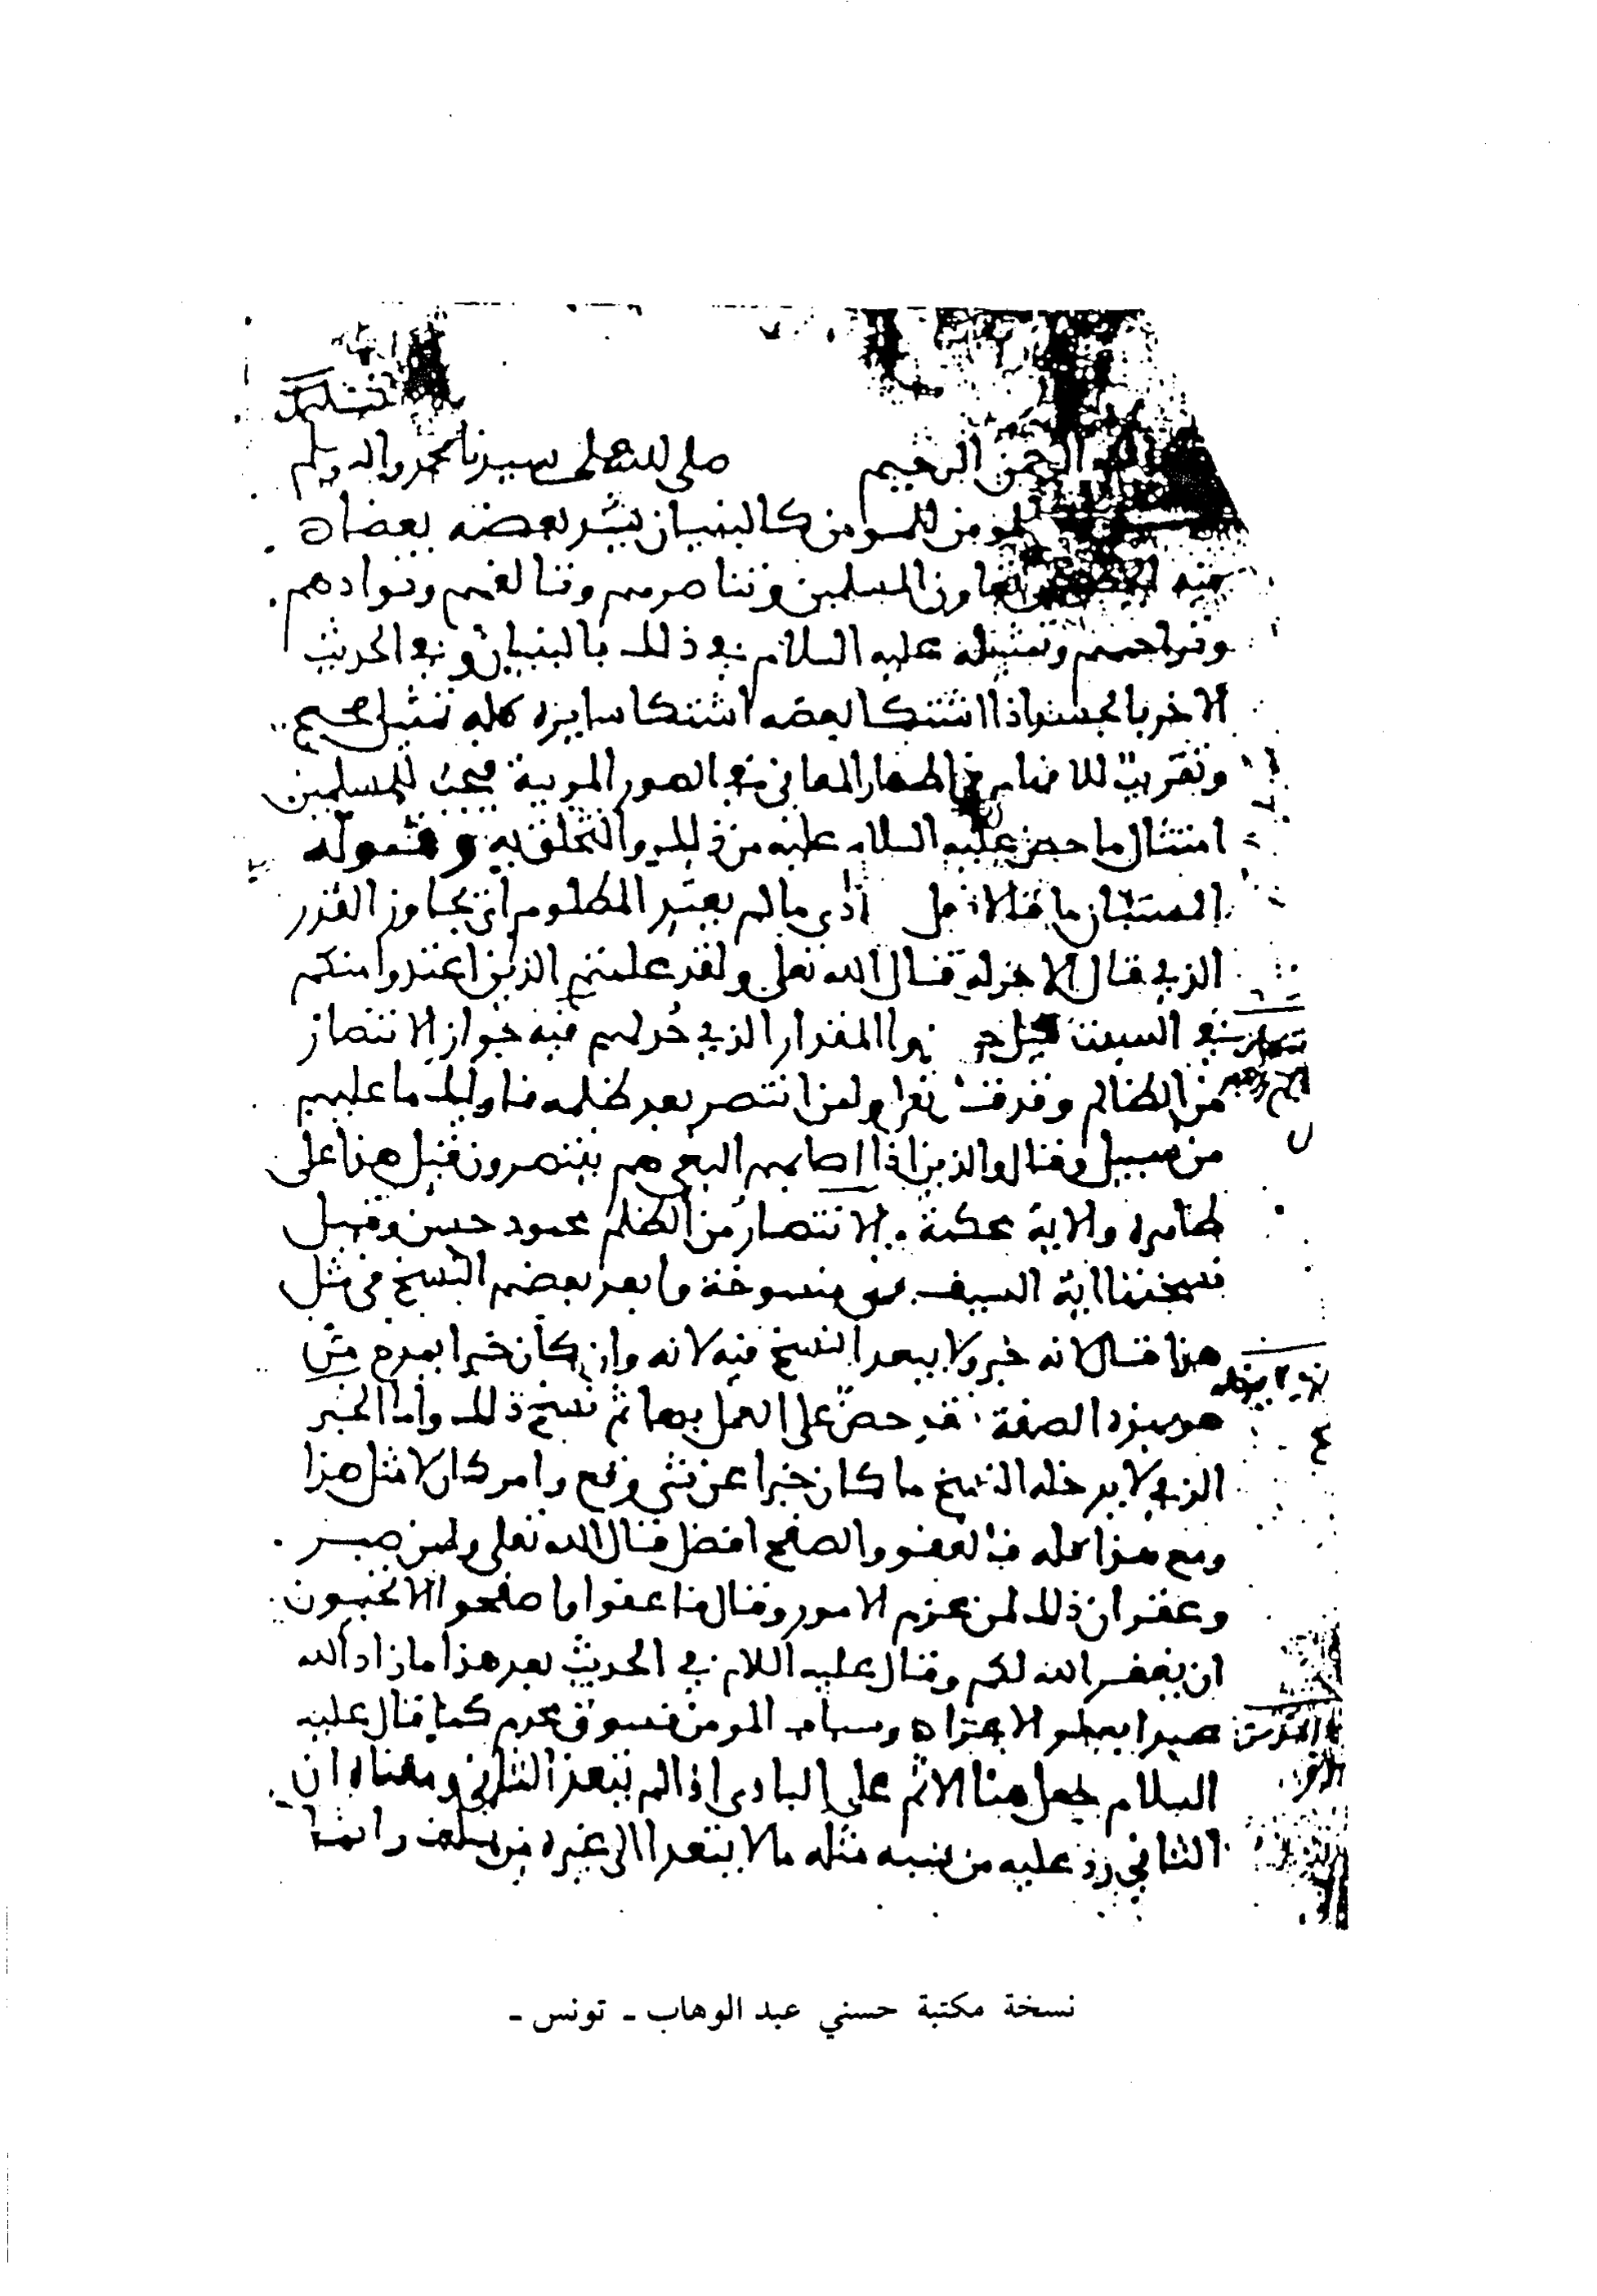 الرحمن الرحيم صلى الله على سيدنا محمد واله وسلم
المومن للمومن كالبنيان يشد بعضه بعضا
فيه تعاون المسلمين وتناصرهم وتالفهم وتوادهم
وتراحمهم وتمثيله عليه السلام في ذلك بالبنيان وفي الحديث
الاخر بالجسد اذا اشتكا بعضه اشتكا سايره كله تمثيل صحيح
وتقريب للافهام في اظهار المعاني في الصور المربية فيجب للمسلمين
امتثال ما حض عليه السلام عليه من ذلك والتخلق به وقوله
المستبان ما قالا فعلى اذى ما لم يعتد المظلوم اي يجاوز القدر
الذي قال الاخر له قال الله تعلى ولقد علمتم الذين اعتدوا منكم
في السبت المقدار الذي حد لهم فيه جواز الانتصار
من الظالم وقد تعلى ولمن انتصر بعد ظلمه فاوليك ما عليهم
من سبيل وقال والذين اذا اصابهم البغي هم ينتصرون فقيل هذا على
ظاهره والاية محكمة والانتصار من الظلم محمود حسن وقيل
نسختها اية السيف فهي منسوخة وابعد بعضهم النسخ في مثل
هذا قال لانه خبر ولا يبعد النسخ فيه لانه وان كان خبرا بمدح من
هو بهذه الصفة فقد حض على العمل بها ثم نسخ ذلك واما الخبر
الذي لا يدخله النسخ ما كان خبرا عن شي وقع وامر كان لا مثل هذا
ومع هذا كله فالعفو والصفح افضل قال الله تعلى ولمن صبر
وغفر ان ذلك لمن عزم الامور وقال فاعفوا واصفحوا الا تحبون
ان يغفر الله لكم وقال عليه السلام في الحديث بعد هذا ما زاد الله
عبدا بعفو الا عزا وسباب المومن فسوق محرم كما قال عليه
السلام فجعل هنا الاثم على البادي اذ لم يتعد الثاني ومعناه ان
الثاني رد عليه من سبه مثله ما لا يتعدا الى غيره من سلف وانما
نسخة مكتبة حسني عبد الوهاب - تونس -